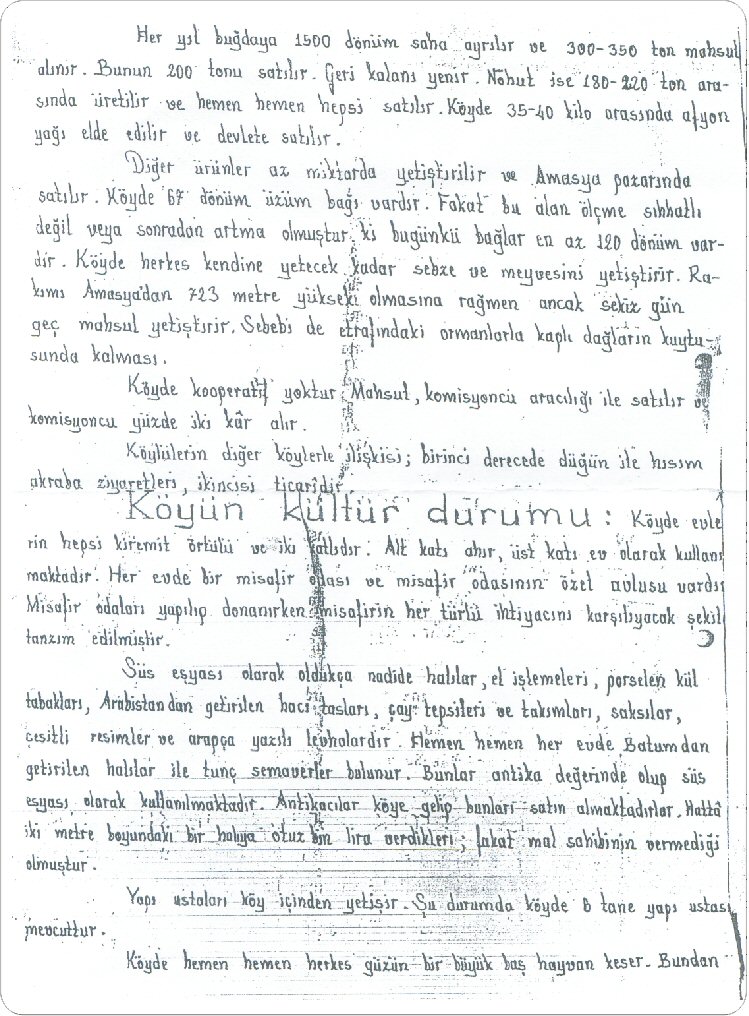 Her yıl buğdaya 1500 dönüm saha ayrılır ve 300-350 ton mahsul
alınır. Bunun 200 tonu satılır. Geri kalanı yenir. Nohut ise 180-220 ton ara-
sında üretilir ve hemen hemen hepsi satılır. Köyde 35-40 kilo arasında afyon
yağı elde edilir ve devlete satılır.
Diğer ürünler az miktarda yetiştirilir ve Amasya pazarında
satılır. Köyde 67 dönüm üzüm bağı vardır. Fakat bu alan ölçme sıhhatlı
değil veya sonradan artma olmuştur ki bugünkü bağlar en az 120 dönüm var-
dır. Köyde herkes kendine yetecek kadar sebze ve meyvesini yetiştirir. Ra-
kımı Amasya'dan 723 metre yüksek olmasına rağmen ancak sekiz gün
geç mahsul yetiştirir. Sebebi de etrafındaki ormanlarla kaplı dağların kuytu-
sunda kalması.
Köyde kooperatif yoktur. Mahsul, komisyoncu aracılığı ile satılır ve
komisyoncu yüzde iki kâr alır.
Köylülerin diğer köylerle ilişkisi; birinci derecede düğün ile hısım
akraba ziyaretleri, ikincisi ticarîdir.
Köyün kültür durumu: Köyde evle
rin hepsi kiremit örtülü ve iki katlıdır. Alt katı ahır, üst katı ev olarak kullanı
maktadır. Her evde bir misafir odası ve misafir odasının özel avlusu vardı
Misafir odaları yapılıp donanırken misafirin her türlü ihtiyacını karşılıyacak şekil
tanzim edilmiştir.
Süs eşyası olarak oldukça nadide halılar, el işlemeleri, porselen kül
tabakları, Arabistandan getirilen hacı tasları, çay tepsileri ve takımları, saksılar,
çeşitli resimler ve arapça yazılı levhalardır. Hemen hemen her evde Batumdan
getirilen halılar ile tunç semaverler bulunur. Bunlar antika değerinde olup süs
eşyası olarak kullanılmaktadır. Antikacılar köye gelip bunları satın almaktadırlar. Hattâ
iki metre boyundaki bir halıya otuz bin lira verdikleri; fakat mal sahibinin vermediği
olmuştur.
Yapı ustaları köy içinden yetişir. Şu durumda köyde 6 tane yapı ustası
mevcuttur.
Köyde hemen hemen herkes güzün bir büyük baş hayvan keser. Bundan